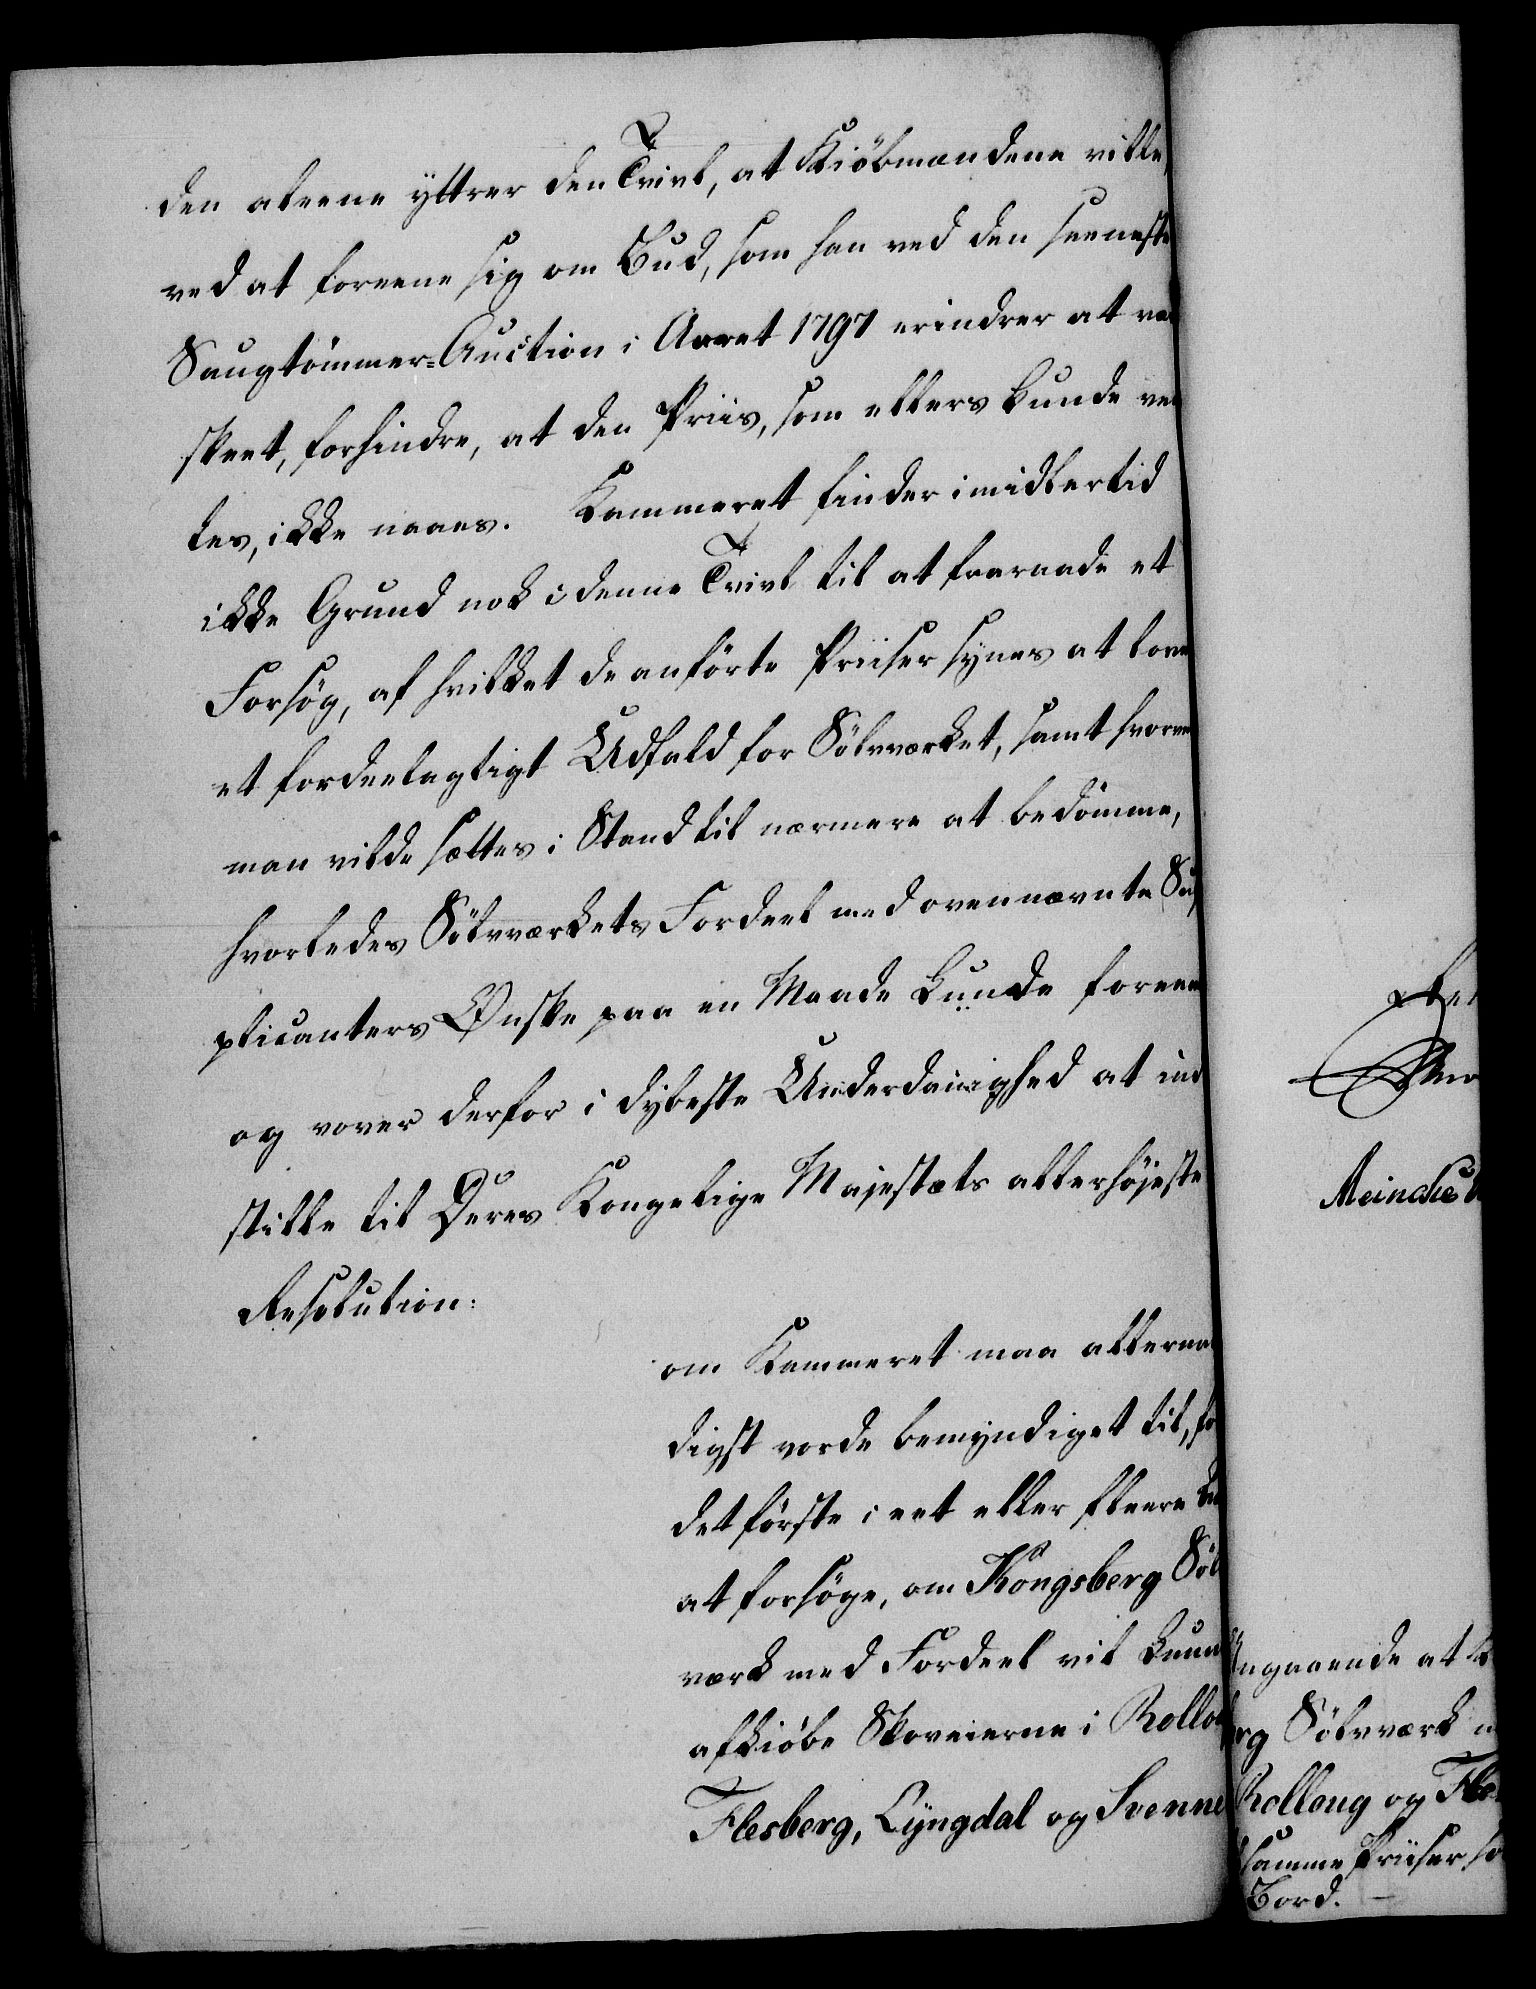 den aleene yttrer den Tvivl, at Kiöbmændene ville,
ved at foreene sig om Bud, som han ved den seeneste
Saugtömmer-Auction i Aaret 1797 erindrer at væ
skeet, forhindre, at den Priis, som ellers kunde ven
tes, ikke naaes. Kammeret finder imidlertid
ikke Grund nok i denne Tvivl til at fraraade et
Forsög, af hvilket de anförte Priiser synes at love
et fordeelagtigt Udfald for Sölvværket, samt hvorve
man vilde sættes i Stand til nærmere at bedömme,
hvorledes Sölvværkets Fordeel med ovennævnte Sup
plicanters Ønske paa en Maade kunde foreen
og vover derfor i dybeste Underdanighed at ind
stille til Deres Kongelige Majestæts allerhöjeste
Resolution:
om Kammeret maa allernaa
digst vorde bemyndiget til, fo
det förste i eet eller fleere
at forsöge, om Kongsberg Söl
værk med Fordeel vil kunn
afkiöbe Skoveierne i Rollou
Flesberg, Lyngdal og Svenne
Meincke
Angaaende at
rg Sölvværk
Rolloug og Fles
samme Priiser so
Bord.